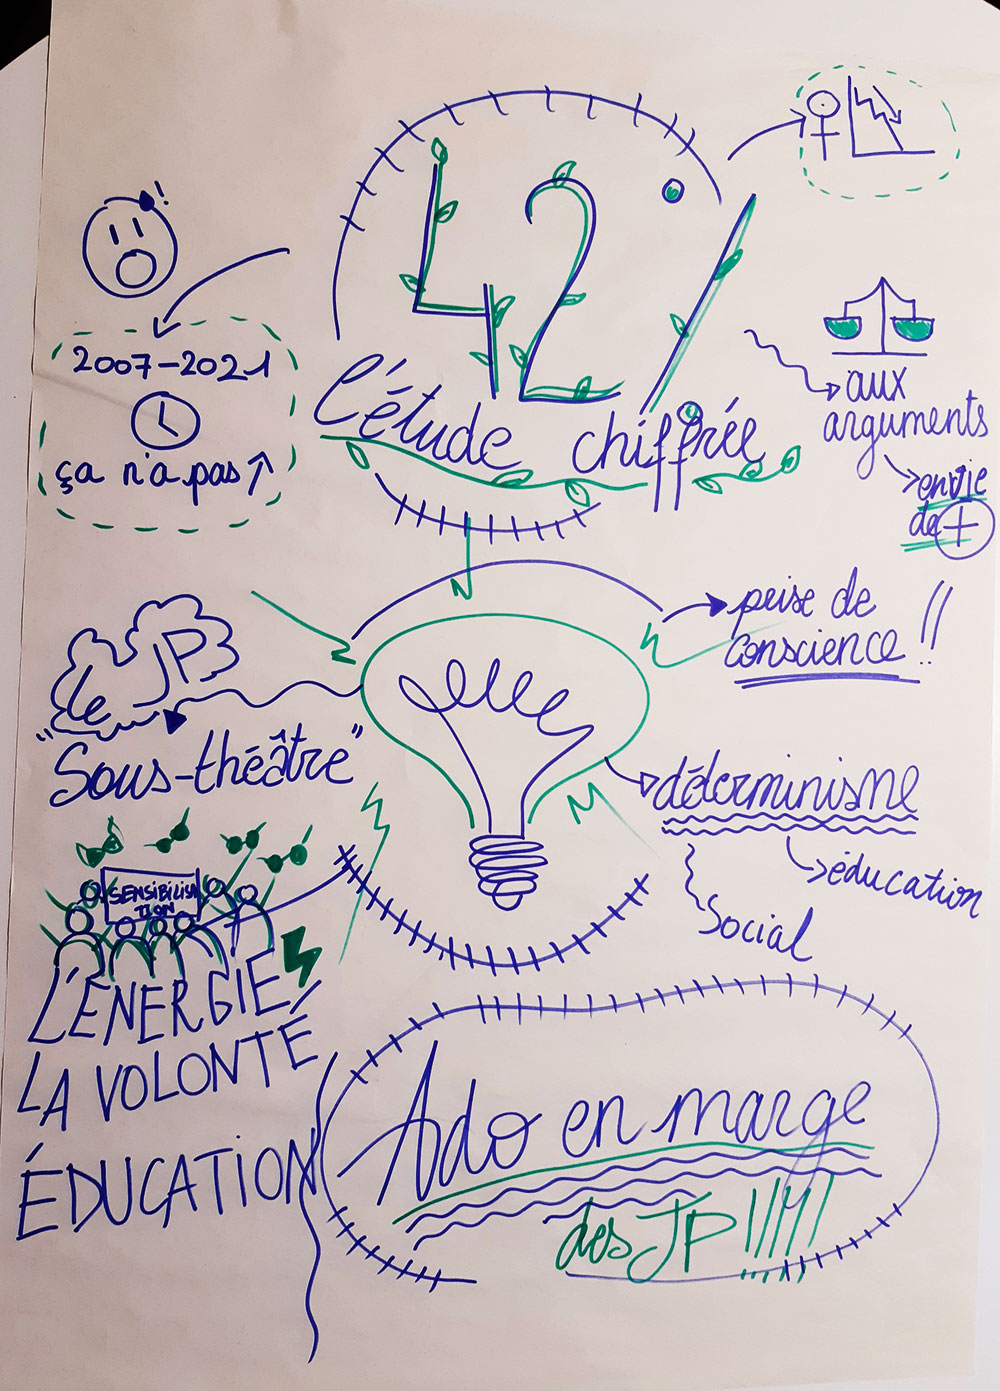 42%
l'étude chiffrée
!
2007-2021
ça n'a pas ↑
aux
arguments
envie
de +
prise de
conscience !!
le JP
"Sous-théâtre"
déterminisme
éducation
Social
SENSIBILISA
TION
L'ÉNERGIE
LA VOLONTÉ
ÉDUCATION
Ado en marge
des JP !!!!!